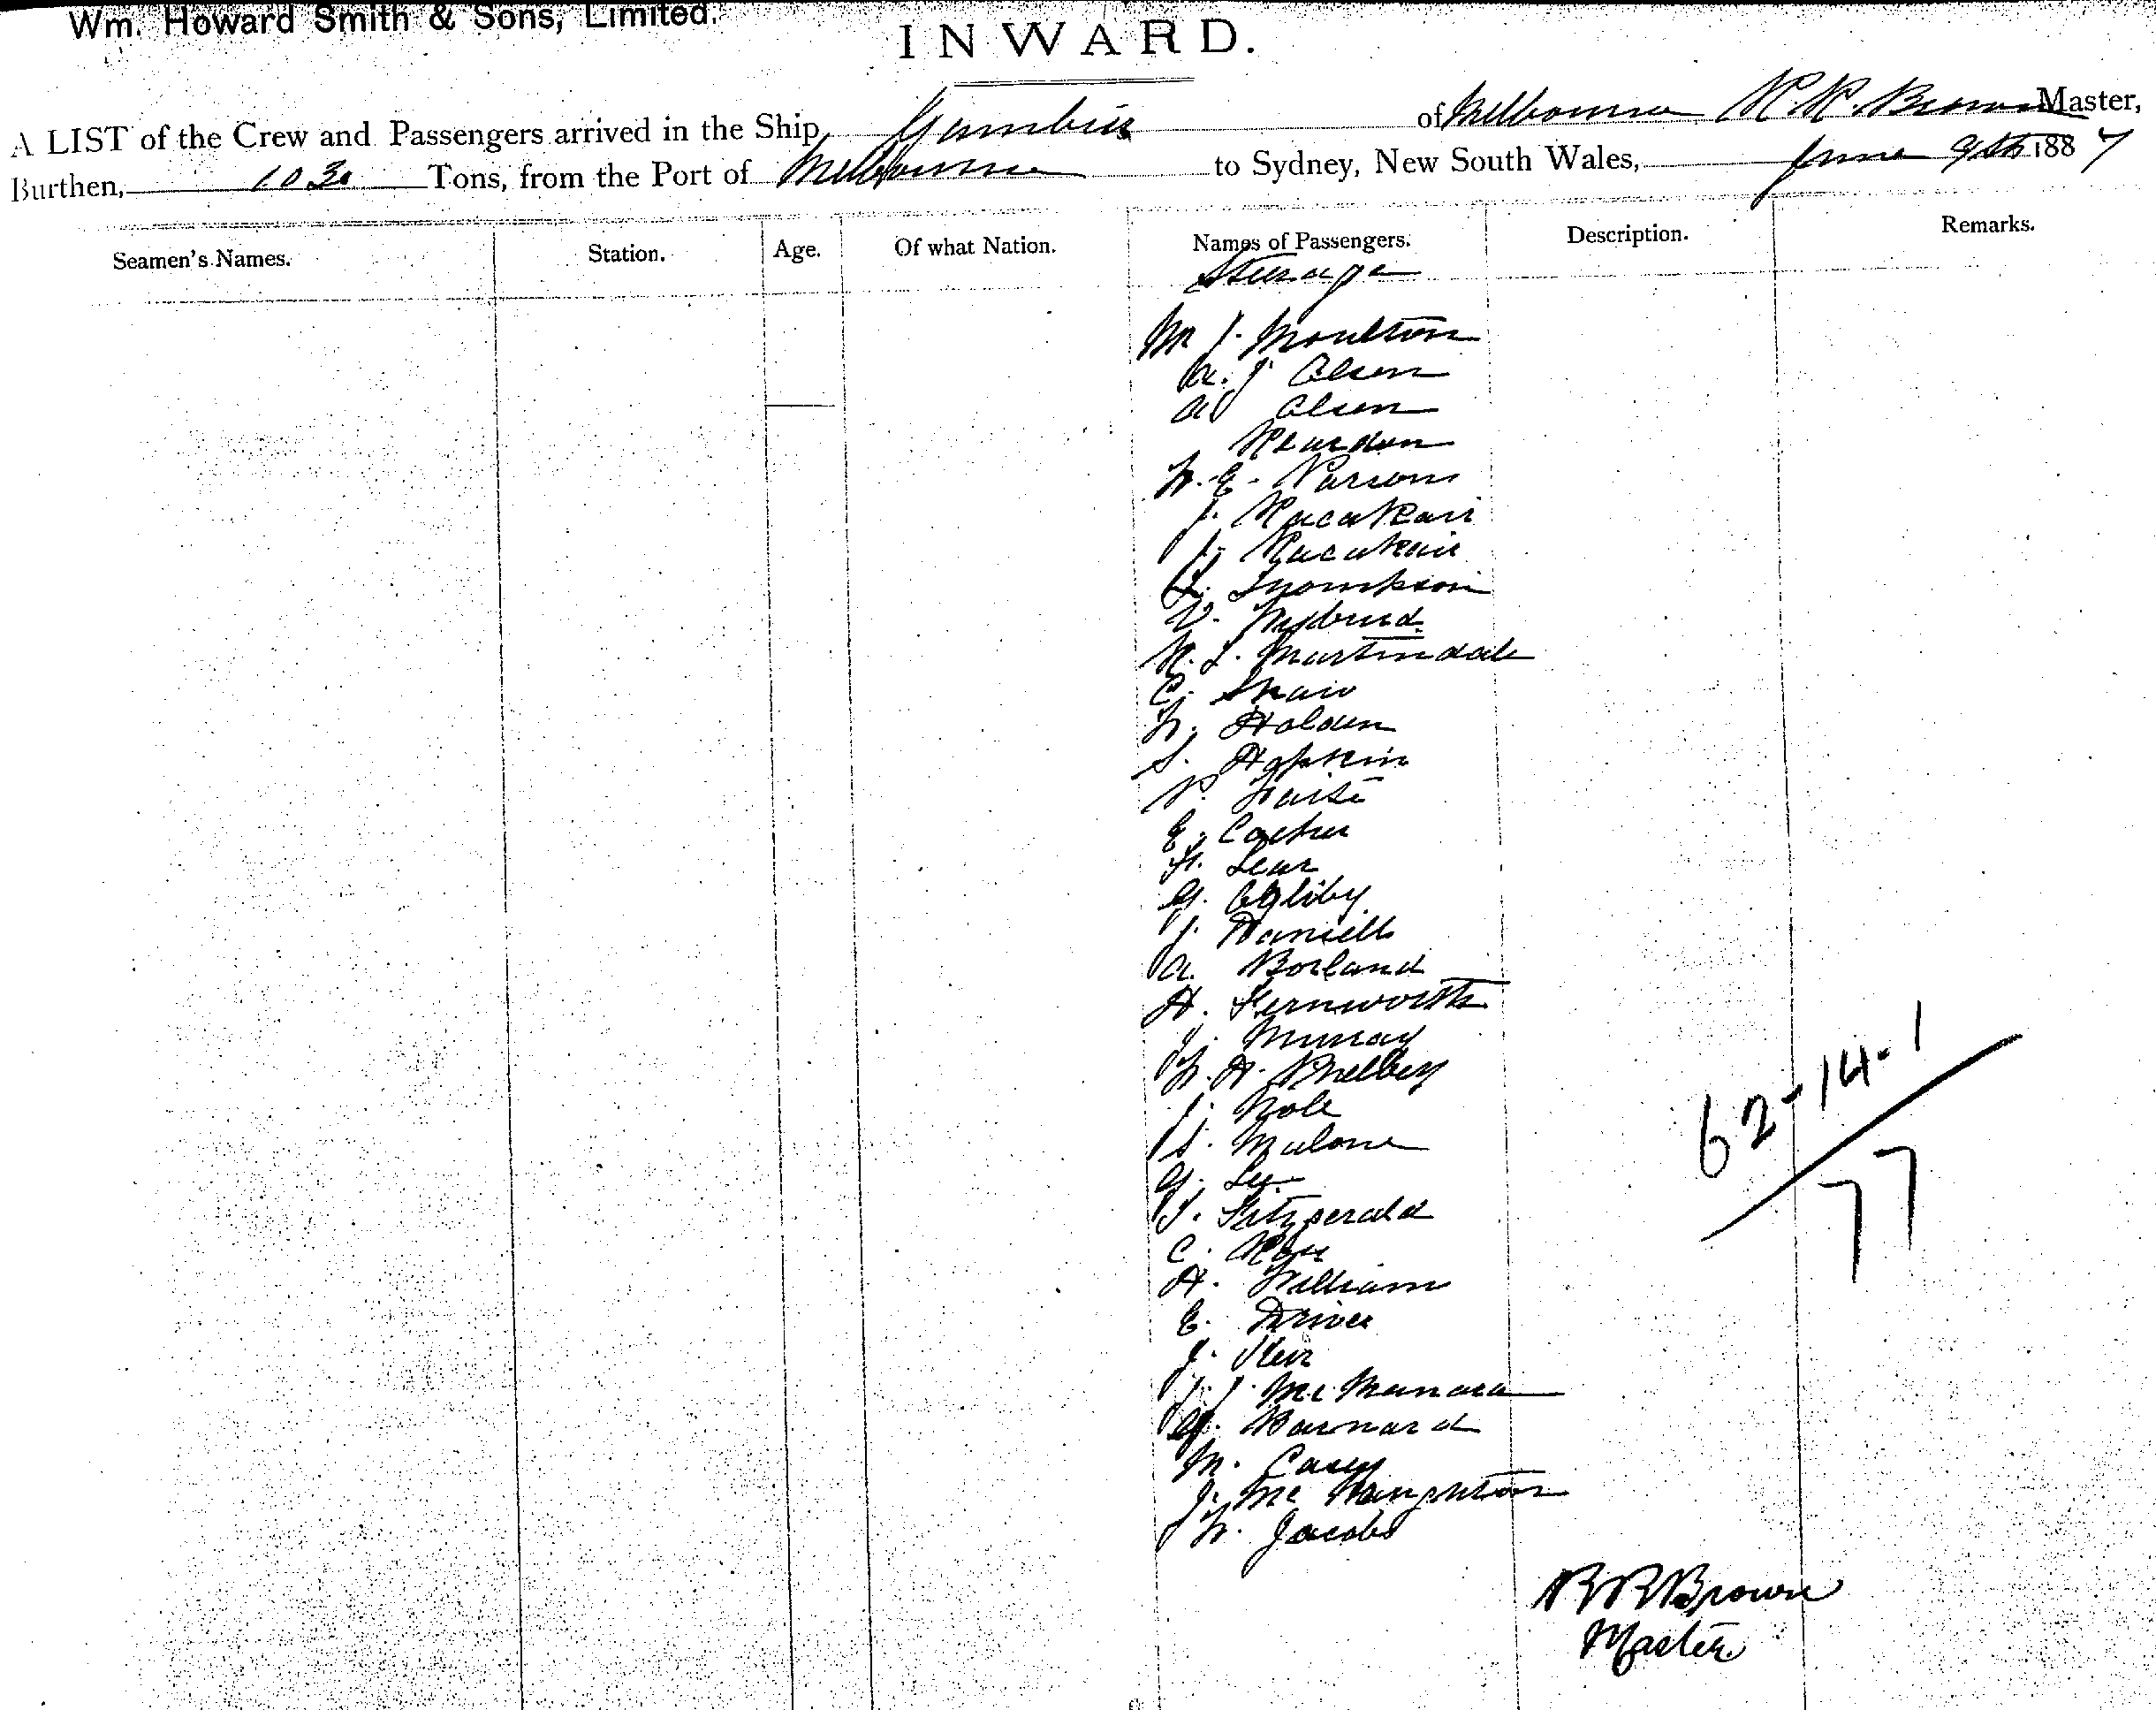 Wm. Howard Smith & Sons, Limited.
INWARD.
A LIST of the Crew and Passengers arrived in the Ship, Gambier of Melbourne R. R. Brown Master,
Burthen, 1030 Tons, from the Port of Melbourne to Sydney, New South Wales, June 9th 1887
Seamen's Names. Station. Age. Of what Nation. Names of Passengers. Description. Remarks.
Steerage
Mr J. Moulton
J. Olsen
Olsen
Reardon
W. E. Parsons
J.
J.
Thompson
V.
R. L. Martindale
C. Shaw
W. Holden
S. Hopkin
P.
E.
F. Lear
G. Ogliby
J. Daniells
A. Borland
H. Fernworth
J. Murray
W. H. Phelbey
J. Nole
S. Malone
G.
T. Fitzgerald
C.
H. William
E. Driver
J.
J. J. McManara
G. Barnard
M. Casey
J. Mc Naughton
W. Jacobs
62-14-1
77
R R Brown
Master